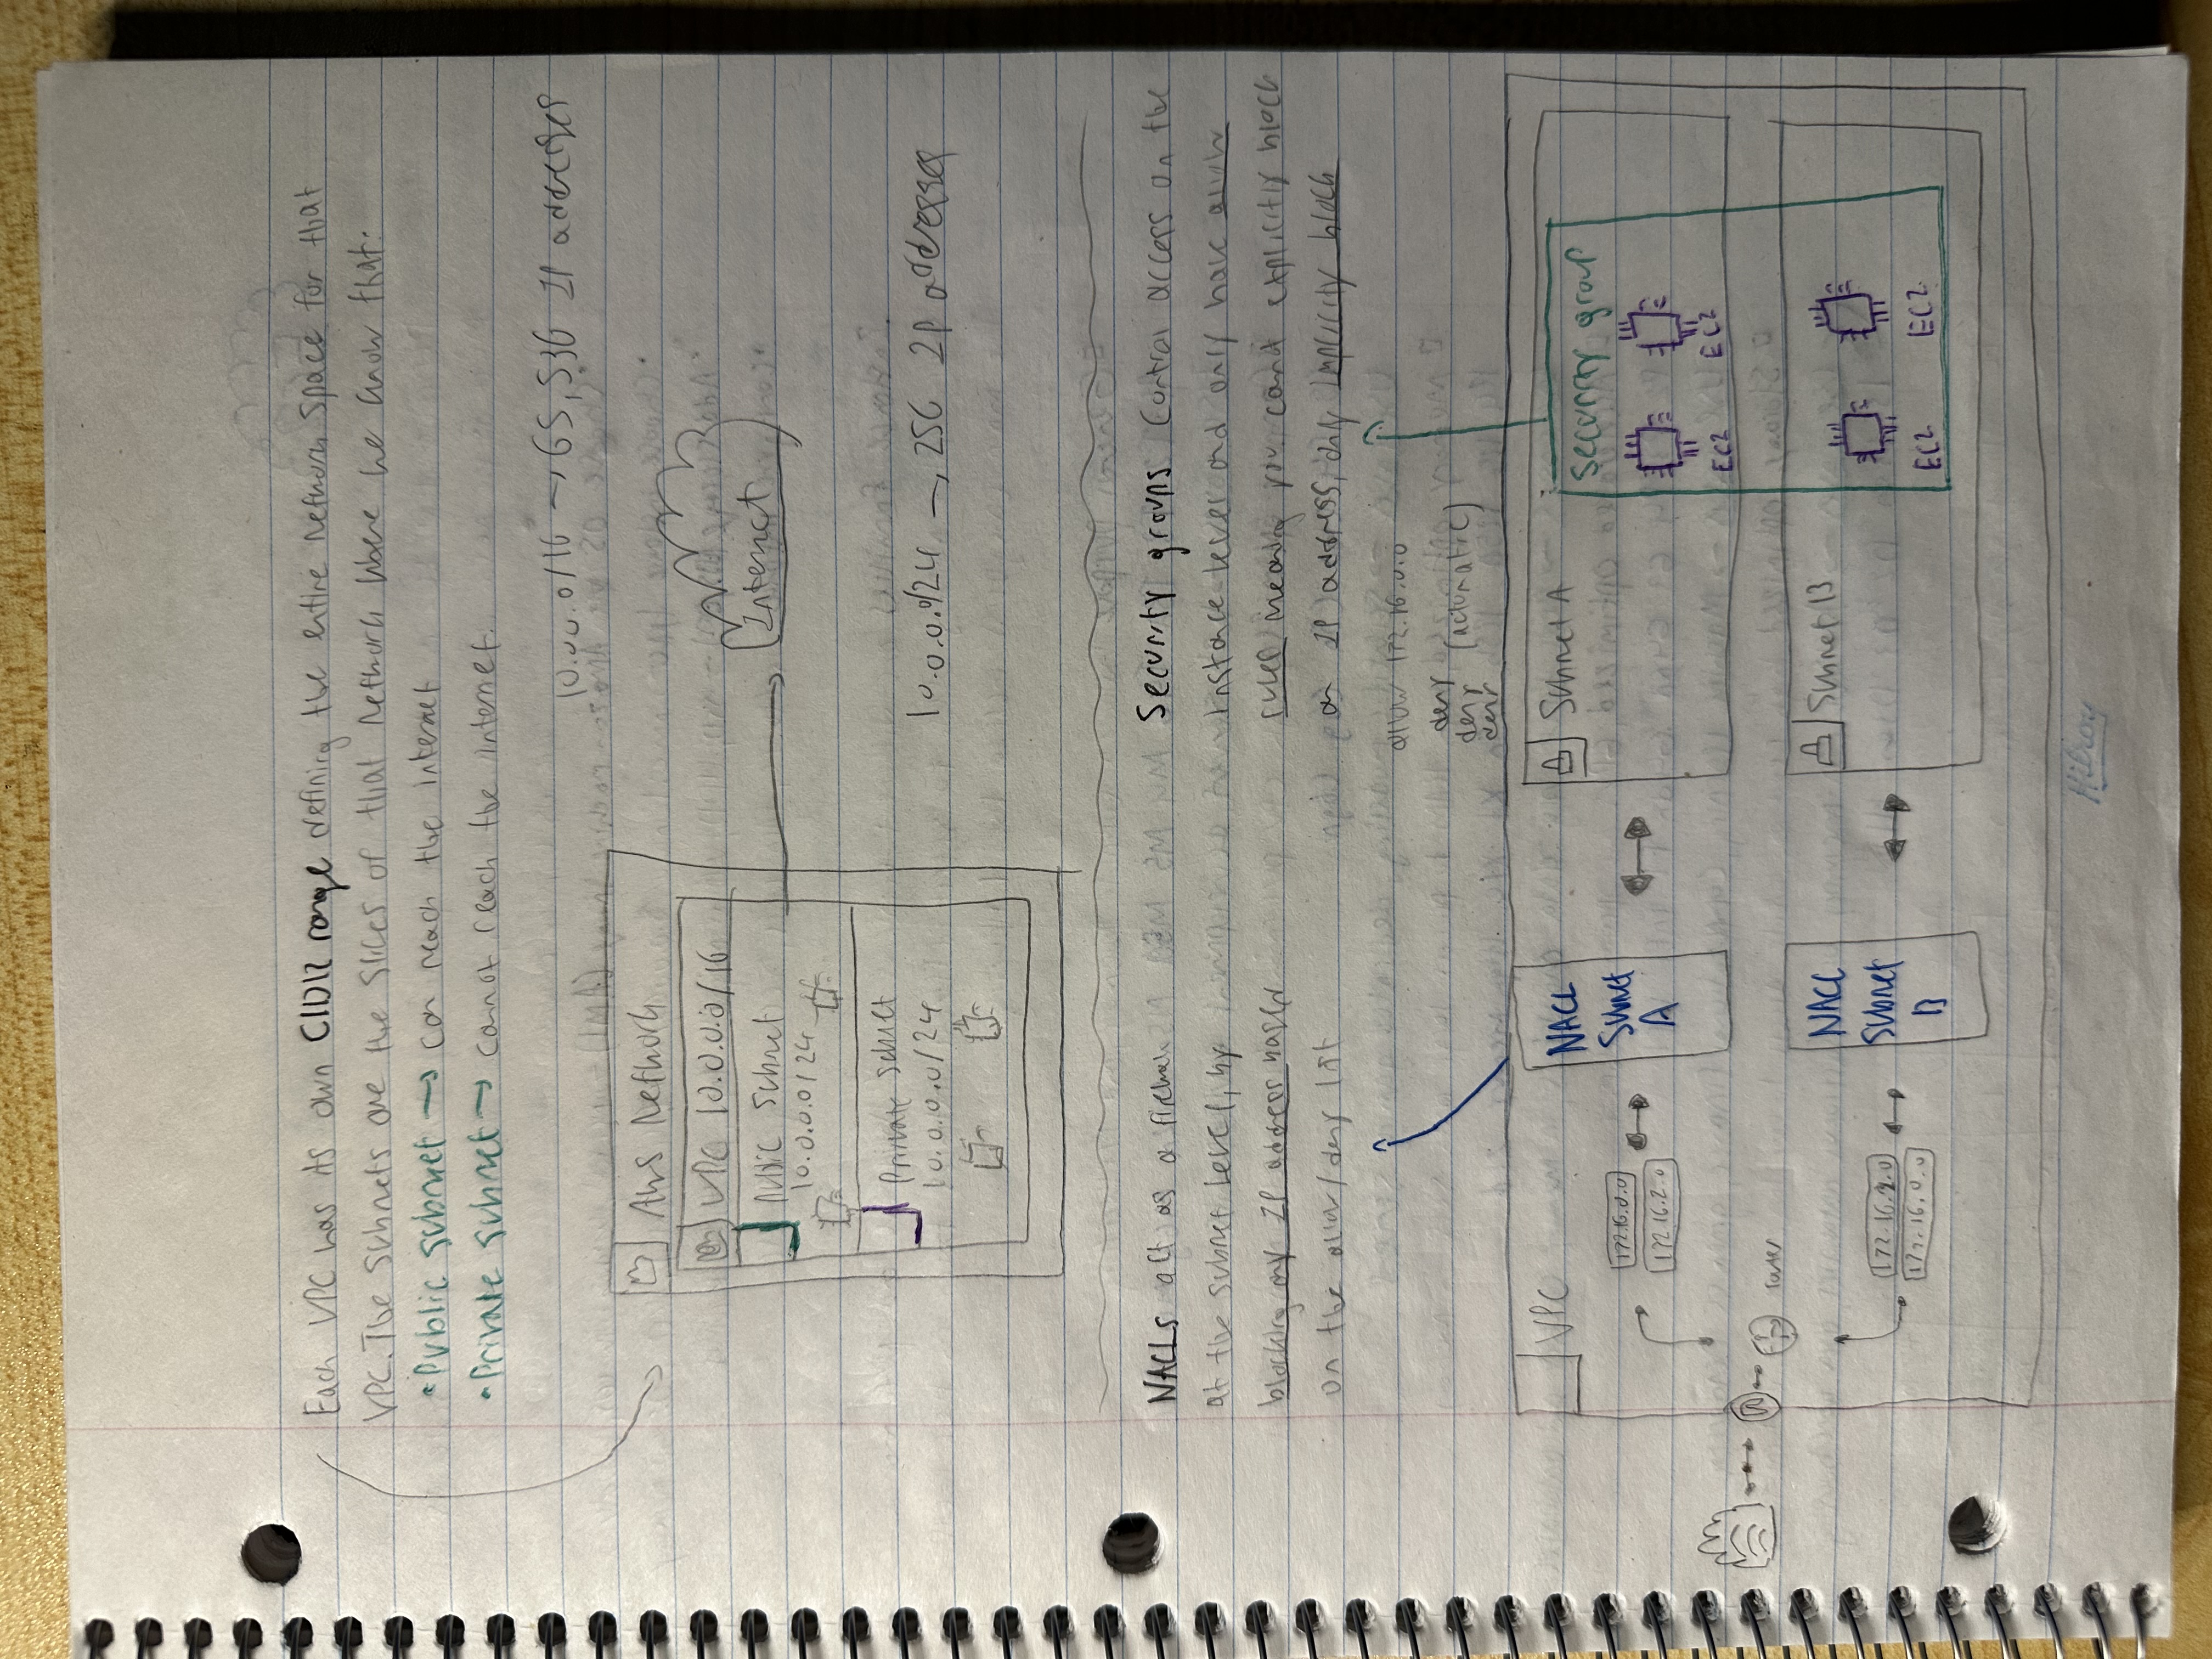 Each VPC has its own CIDR range defining the entire Network Space for that
VPC. The Subnets are the slices of that Network where we know that:
• Public subnet → can reach the internet
• Private Subnet → cannot reach the internet.
10.0.0.0/16 → 65,536 IP addresses
AWS Network
VPC 10.0.0.0/16
Public Subnet
Internet
10.0.0.0/24
Private Subnet
10.0.0.0/24
10.0.0.0/24 → 256 IP addresses
NACLs act as a firewall
at the subnet level, by
blocking any IP address based
on the allow/deny list
Security groups control access on the
Instance level and only have allow
rules meaning you cannot explicitly block
an IP address, only implicitly block
allow 172.16.0.0
deny
deny (automatic)
deny
VPC
NACL
Subnet
A
Subnet A
Security group
172.16.0.0
172.16.2.0
EC2
EC2
router
NACL
Subnet
B
Subnet B
172.16.2.0
172.16.0.0
EC2
EC2
Hilroy